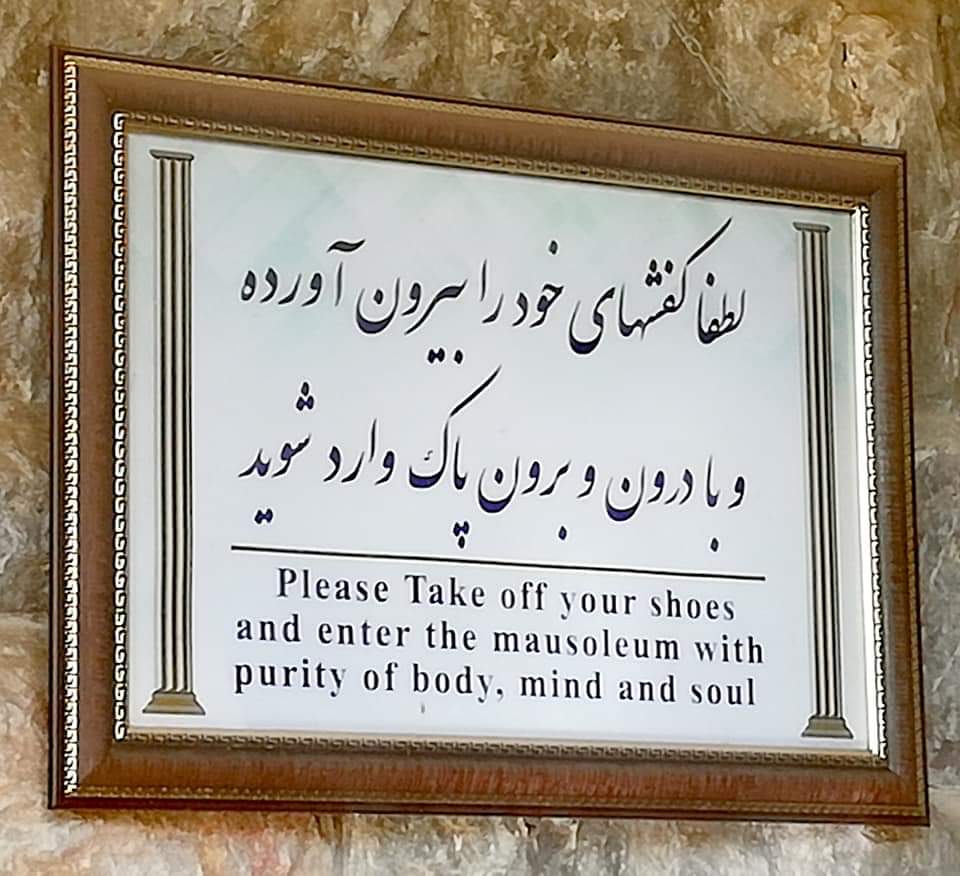 لطفا کفشهای خود را بیرون آورده
و با درون و برون پاک وارد شوید
Please Take off your shoes
and enter the mausoleum with
purity of body, mind and soul